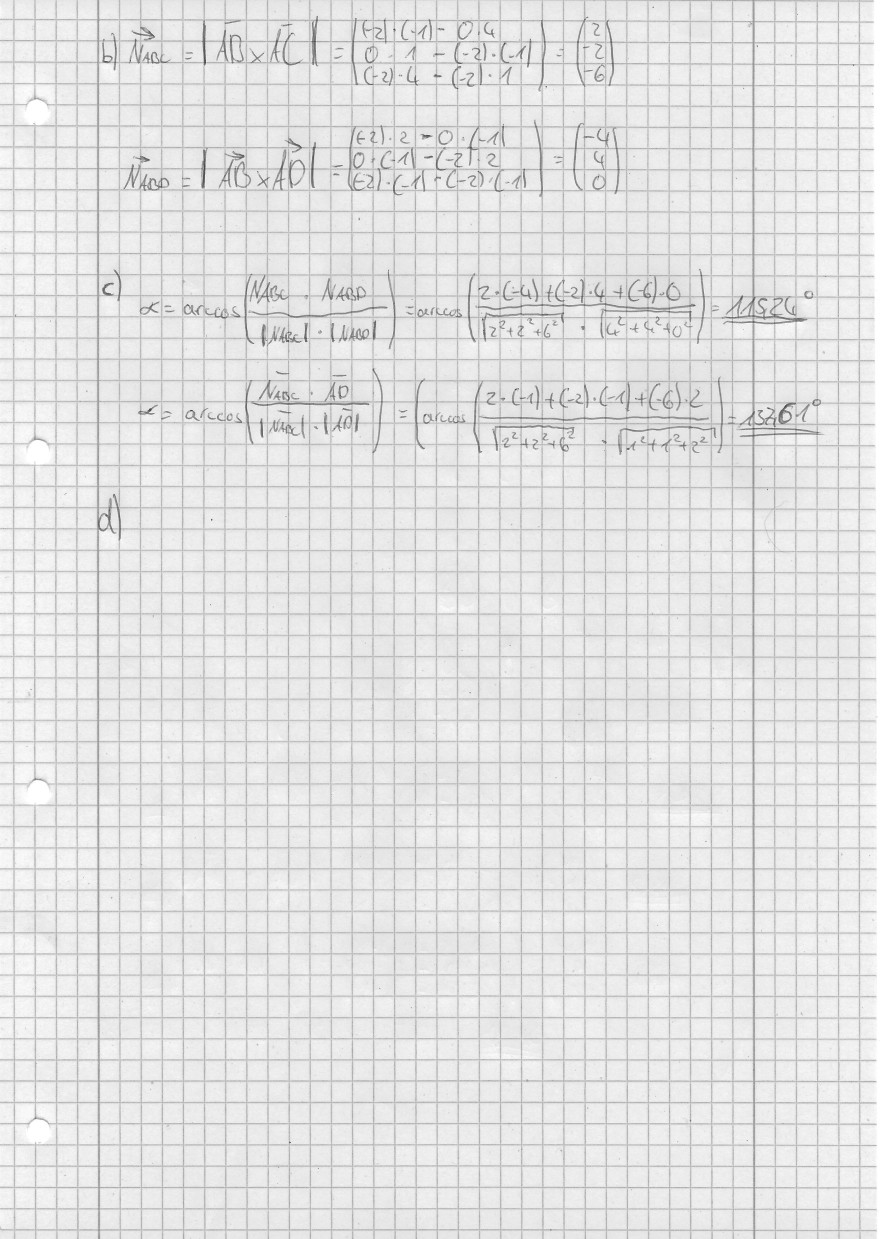 b) N⃗ABC = | AB × AC | = ( (-2)·(-1) - 0·4
0 · 1 - (-2)·(-1)
(-2)·4 - (-2)·1 ) = ( 2
-2
-6 )
N⃗ABD = | AB⃗ × AD⃗ | = ( (-2)·2 - 0·(-1)
0·(-1) - (-2)·2
(-2)·(-1) - (-2)·(-1) ) = ( -4
4
0 )
c) α = arccos( NABC · NABD / |NABC| · |NABD| ) = arccos( 2·(-4) + (-2)·4 + (-6)·0 / √2²+2²+6² · √4²+4²+0² ) = 115,24°
α = arccos( NABC · AD / |NABC| · |AD| ) = (arccos( 2·(-1) + (-2)·(-1) + (-6)·2 / √2²+2²+6² · √1²+1²+2² ) = 137,61°
d)